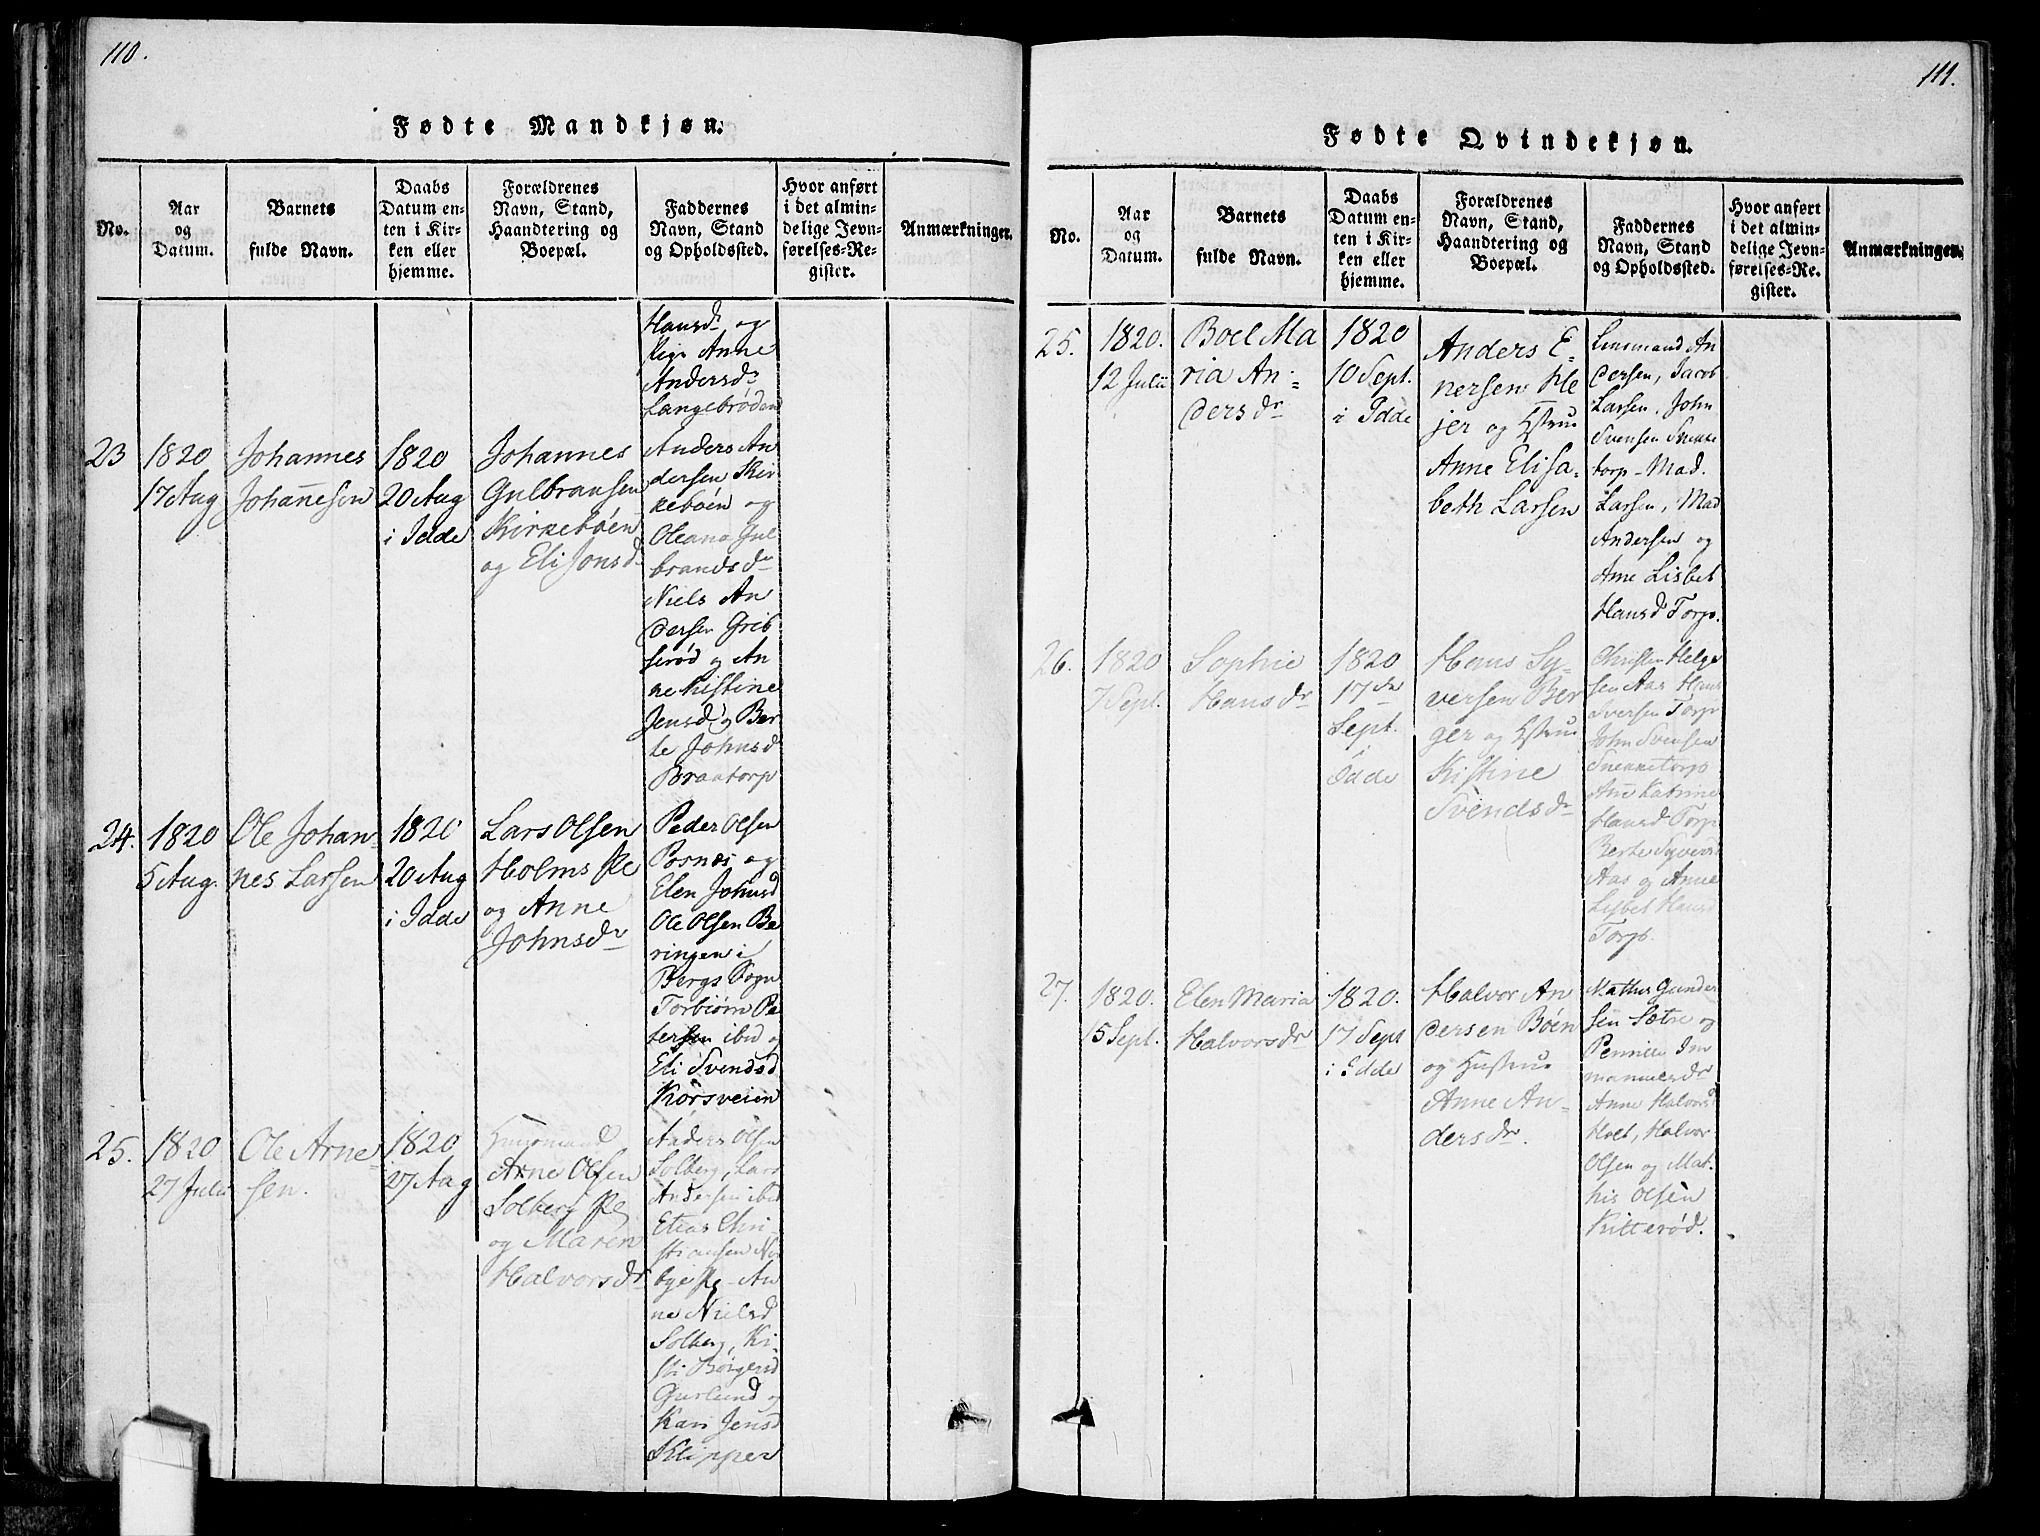 110.
Fødte Mandkjøn.
No.
Aar
og
Datum.
Barnets
fulde Navn.
Daabs
Datum en-
ten i Kir-
ken eller
hjemme.
Forældrenes
Navn, Stand,
Haandtering og
Boepæl.
Faddernes
Navn, Stand
og Opholdssted.
Hvor anført
i det almin-
delige Jevn-
førelses-Re-
gister.
Anmærkninger.
Hansdr og
Pige Anne
Andersdr
Langebrøden
23
1820
17 Aug
Johannes
Johannesen
1820
20 Aug
i Idde
Johannes
Gulbransen
Kirkebøen
og Eli Jonsd
Anders An
dersen Kir
kebøen og
Oleana Gul
brandsdr
Niels An
dersen Grib
serød og An
ne Kistine
Jensd og Ber
te Johnsd
Braatorp
24.
1820
5 Aug.
Ole Johan-
nes Larsen
1820
20 Aug
i Idde
Lars Olsen
Holms Pe
og Anne
Johnsdr
Peder Olsen
Posnæs og
Elen Johnsd
Ole Olsen Be
ringen i
Bergs Sogn
Torbiørn Pe
tersen ibid og
Eli Svendsd
Korsveien
25.
1820
27 Julii
Ole Arne-
sen.
1820
27 Aug
Huusmand
Arne Olsen
Solberg Pe
og Maren
Halvorsdr
Anders Olsen
Solberg, Lars
Andersen ibid
Elias Chri
stiansen No
bye Pe - An
ne Nielsd
Solberg, Ki-
sti Børgersd
Gurlund og
Kari Jensd
Klipper
111.
Fødte Qvindekjøn.
No.
Aar
og
Datum.
Barnets
fulde Navn.
Daabs
Datum en-
ten i Kir-
ken eller
hjemme.
Forældrenes
Navn, Stand,
Haandtering og
Boepæl.
Faddernes
Navn, Stand
og Opholdssted.
Hvor anført
i det almin-
delige Jevn-
førelses-Re-
gister.
Anmærkninger.
25.
1820.
12 Julii
Boel Ma
ria An-
dersdr
1820
10 Sept.
i Idde
Anders E-
nersen He
jer og Hstru
Anne Elisa-
beth Larsen
Linsmand An
dersen, Jacob
Larsen, John
Svensen Snekke
torp - Mad.
Larsen, Mad
Andersen og
Ane Lisbet
Hansd Torp.
26.
1820
7 Sept.
Sophie
Hansdr
1820
17de
Sept.
i
Idde
Hans Sy-
versen Ber
ger og Hstru
Kistine
Svendsdr
Christen Helge
sen Aas Hans
Iversen Torp
John Svensen
Snekketorp
Ane Katrine
Hansd Torp
Berte Syversd
Aas og Anne
Lisbet Hansd
Torp.
27.
1820.
15 Sept.
Elen Maria
Halvorsdr
1820.
17 Sept
i Idde
Halvor An
dersen Bøen
og Hustrue
Anne An-
dersdr.
Mathis Gunder
sen Sætre og
Pernille Im
manuelsdr
Anne Halvorsd
Holt, Halvor
Olsen og Mat-
his Olsen
Kitterød.